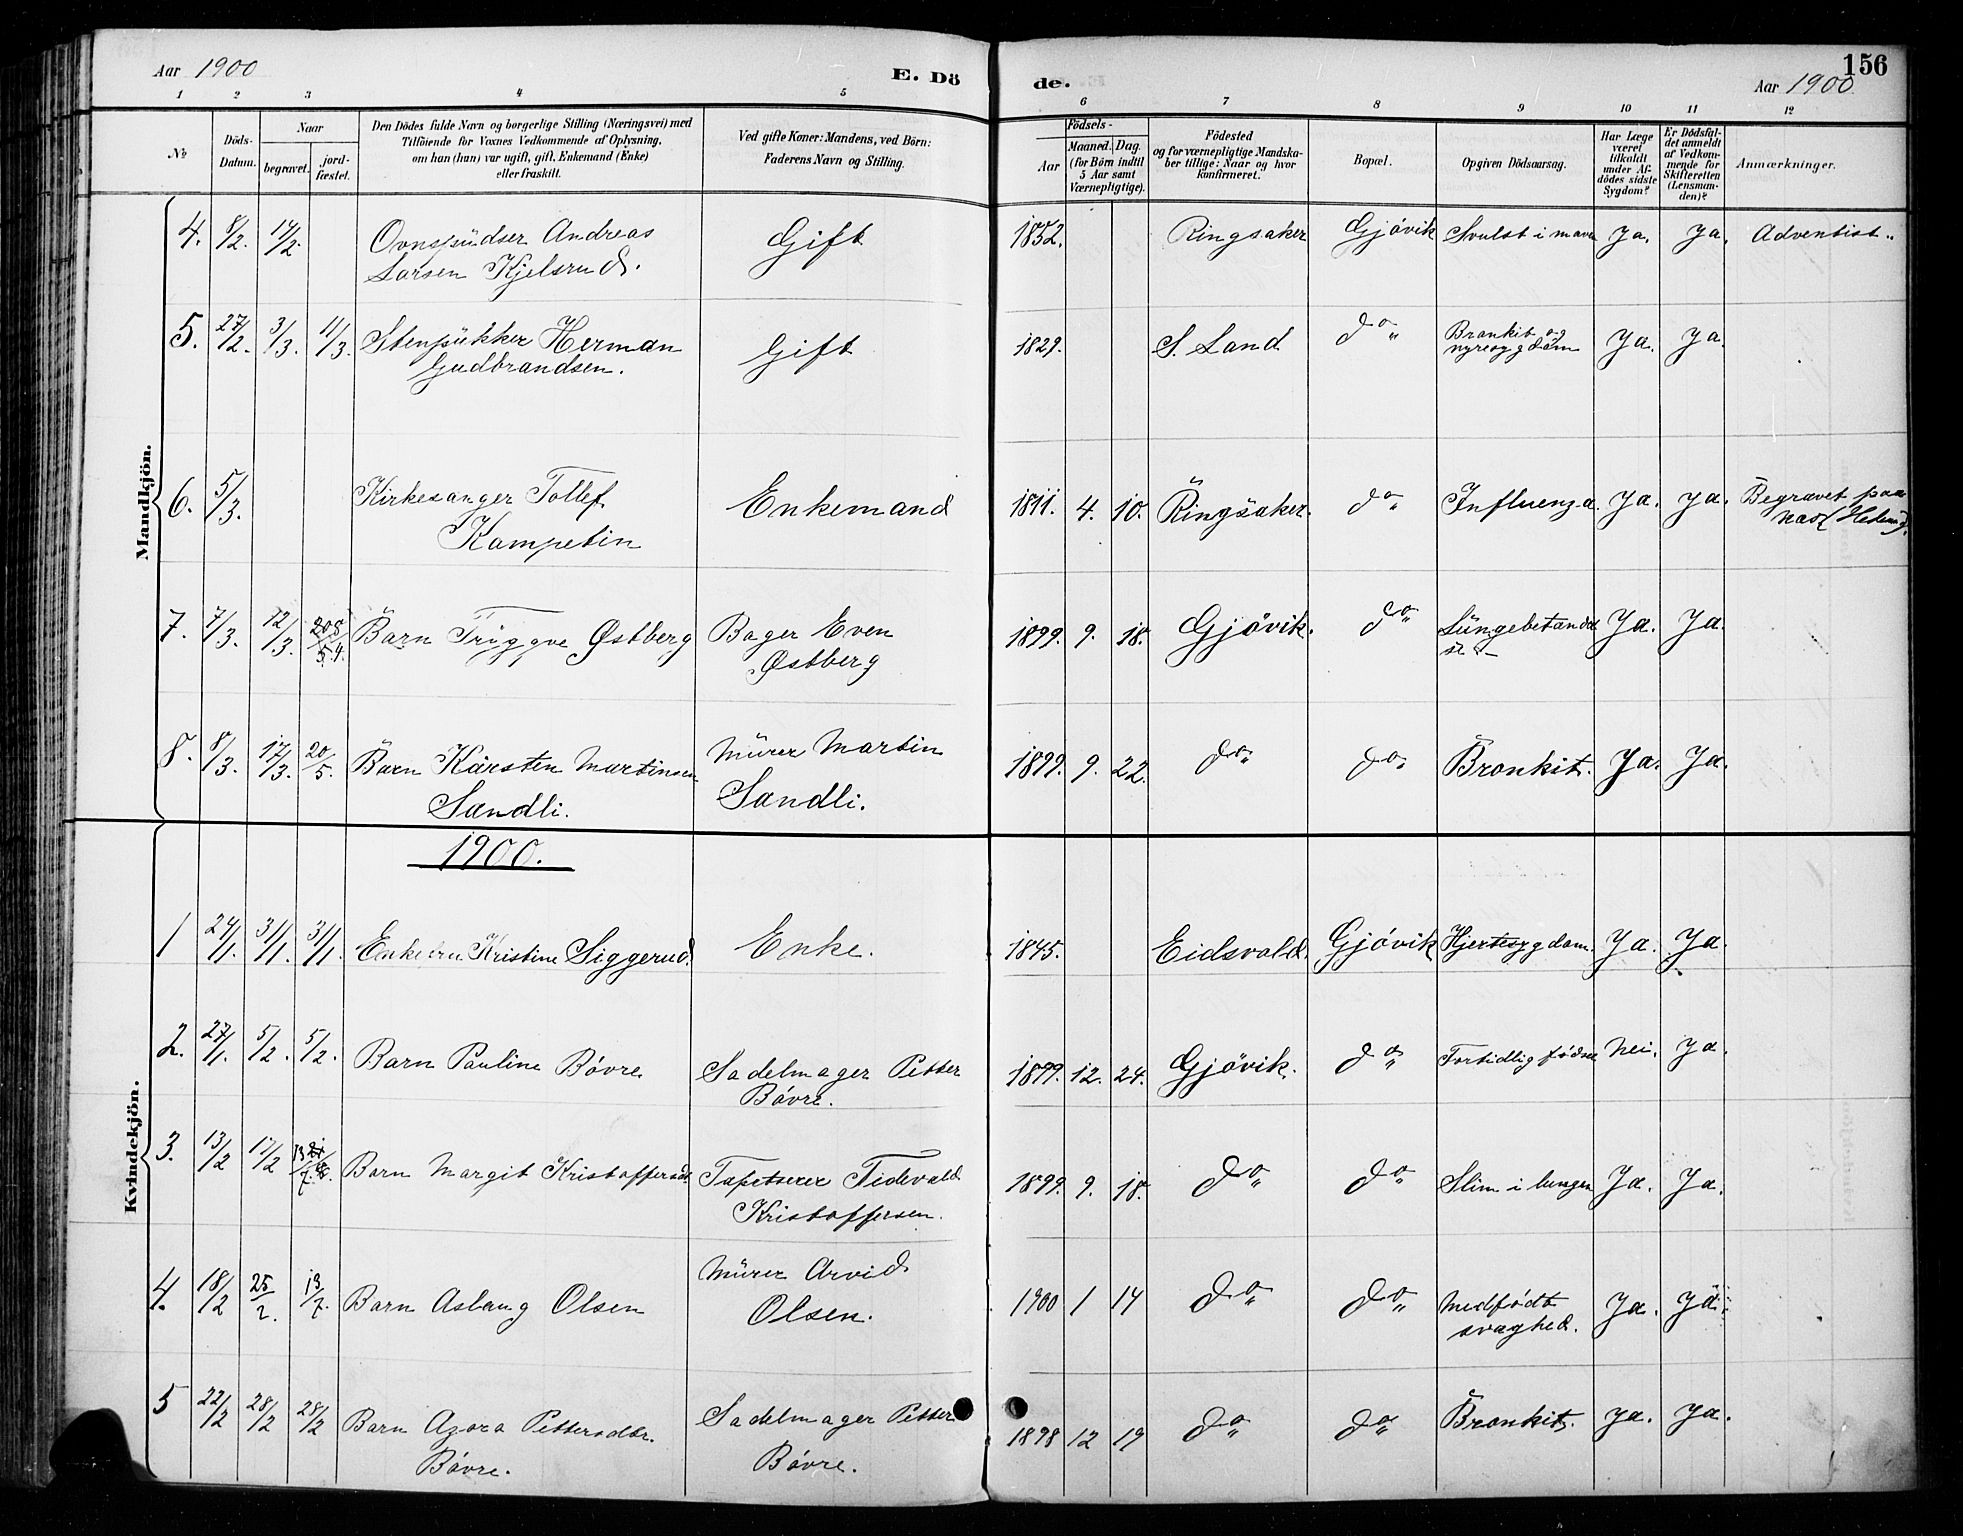 Aar 1900
E. Dö
de.
156
Aar 1900
1 2 3 4 5 6 7 8 9 10 11 12
No
Döds-Datum.
Naar
begravet.
jord-fæstet.
Den Dödes fulde Navn og borgerlige Stilling (Næringsvei) med
Tilföiende for Voxnes Vedkommende af Oplysning,
om hun (han) var ugift, gift, Enkemand (Enke)
eller fraskilt.
Ved gifte Koner: Mandens, ved Börn:
Faderens Navn og Stilling.
Födsels-
Aar
Maaned. Dag.
(for Börn indtil
5 Aar samt
Værnepligtige).
Födested
og for værnepligtige Mandska-
ber tillige: Naar og hvor
konfirmeret.
Bopæl.
Opgiven Dödsaarsag.
Har Læge
været
tilkaldt
under Af-
dödes sidste
Sygdom?
Er Dödsfal-
det anmeldt
af Vedkom-
mende for
Skifteretten
(Lensman-
den)?
Anmærkninger.
Mandkjön.
4. 8/2. 14/2. Ovnspudser Andreas Gift 1852. Ringsaker Gjövik Svulst i mave Ja. Ja. Adventist.
Larsen Kjelsrud.
5. 27/2. 3/3. 11/3. Stenpukker Herman Gift 1829. S. Land do Bronkit og Ja. Ja.
Gudbrandsen. nyresygdom
6. 5/3. Kirkesanger Tollef Enkemand 1811. 4. 10. Ringsaker. do Influenza. Ja. Ja. Begravet paa
Kampetin Næs Hedem.
7. 7/3. 12/3. Barn Tryggve Østberg Bager Even 1899. 9. 18. Gjövik. do Lungebetændel Ja. Ja.
Østberg se.
8. 8/3. 17/3. 20/5. Barn Karsten Martinsen Murer Martin 1899. 9. 22. do do Bronkit. Ja. Ja.
Sandli. Sandli.
1900.
Kvindekjön.
1 24/1. 31/1. 31/1. Enkefru Kristine Siggerud. Enke. 1845. Eidsvold. Gjövik Hjertesygdom. Ja. Ja.
2. 27/1. 5/2. 5/2. Barn Pauline Bövre Sadelmager Petter 1899. 12. 24. Gjövik. do Fortidlig födsel Nei. Ja.
Bövre.
3. 13/2 17/2 Barn Margit Kristoffersdt Tapetserer Tidevald 1899. 9. 18. do do Slim i lungen Ja. Ja.
Kristoffersen.
4. 18/2 25/2. 13/7. Barn Aslaug Olsen Murer Arvid 1900 1 14 do do Medfödt Ja. Ja.
Olsen. svaghed.
5 22/2 28/2 28/2 Barn Azora Pettersdtr. Sadelmager Petter 1898 12 19 do do Bronkit. Ja. Ja.
Bövre. Bövre.